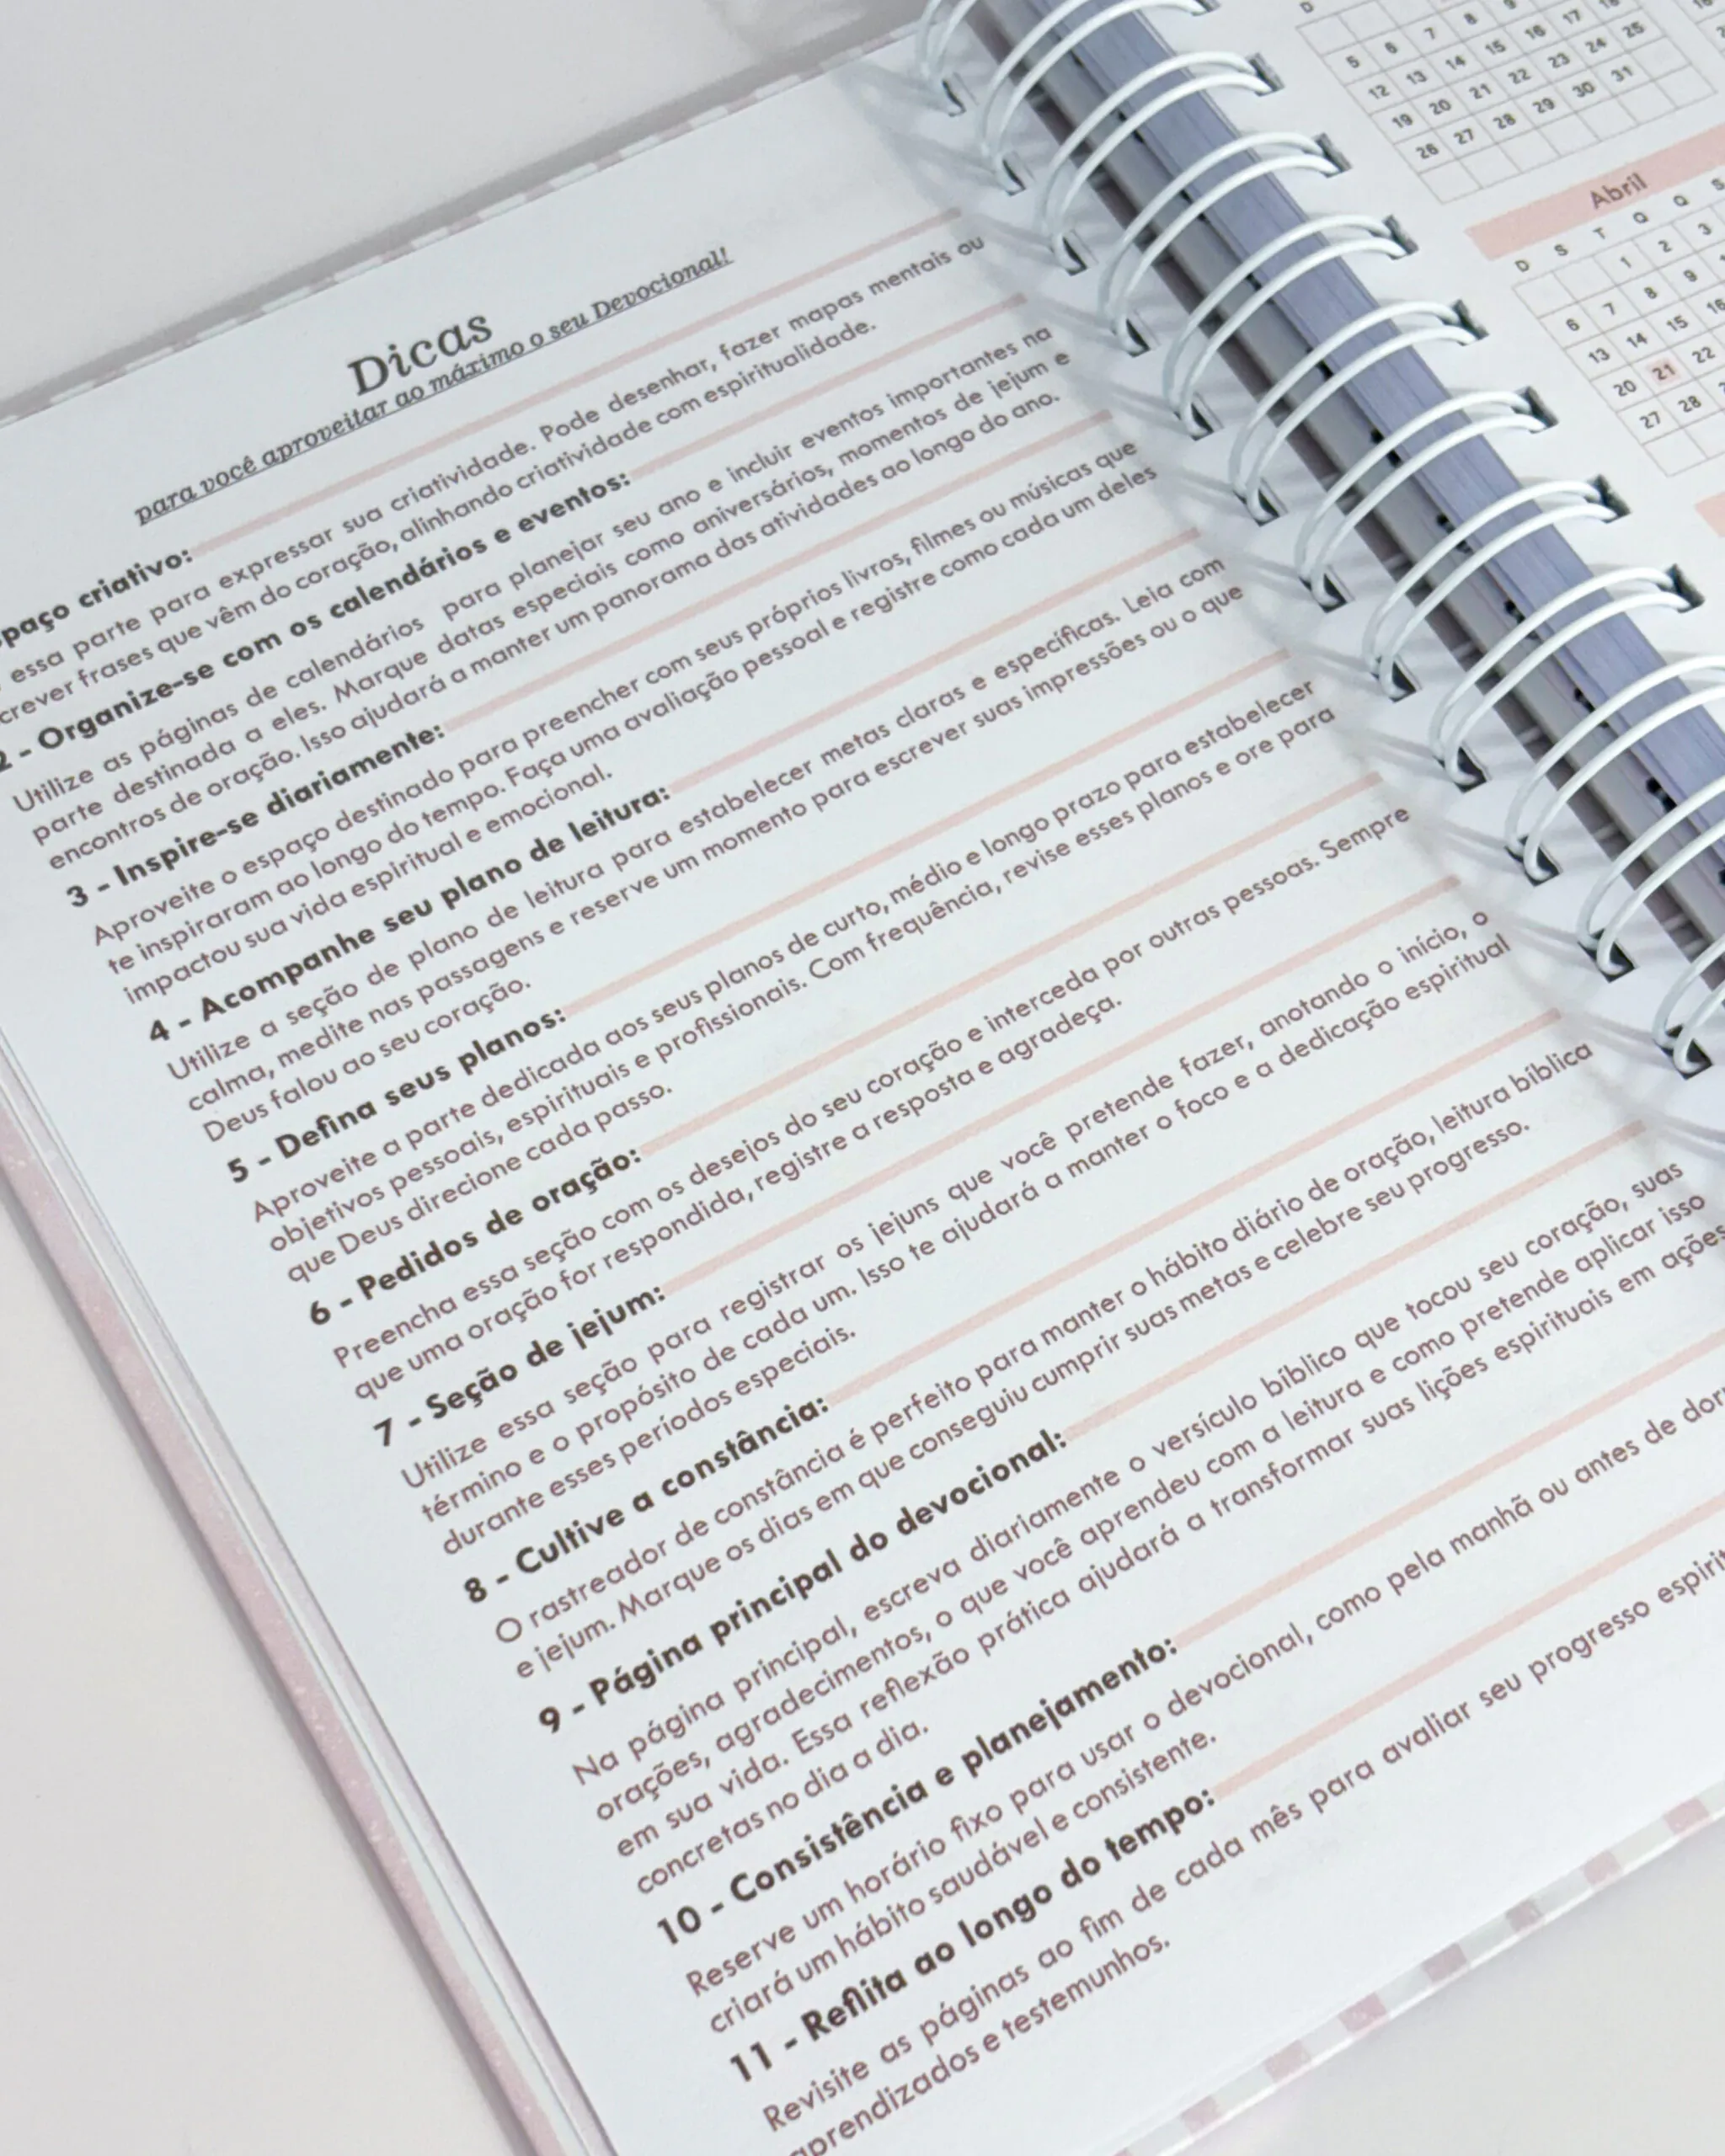 Dicas
para você aproveitar ao máximo o seu Devocional!
criativo:
essa parte para expressar sua criatividade. Pode desenhar, fazer mapas mentais ou
frases que vêm do coração, alinhando criatividade com espiritualidade.
2 - Organize-se com os calendários e eventos:
Utilize as páginas de calendários para planejar seu ano e incluir eventos importantes na
parte destinada a eles. Marque datas especiais como aniversários, momentos de jejum e
encontros de oração. Isso ajudará a manter um panorama das atividades ao longo do ano.
3 - Inspire-se diariamente:
Aproveite o espaço destinado para preencher com seus próprios livros, filmes ou músicas que
te inspiraram ao longo do tempo. Faça uma avaliação pessoal e registre como cada um deles
impactou sua vida espiritual e emocional.
4 - Acompanhe seu plano de leitura:
Utilize a seção de plano de leitura para estabelecer metas claras e específicas. Leia com
calma, medite nas passagens e reserve um momento para escrever suas impressões ou o que
Deus falou ao seu coração.
5 - Defina seus planos:
Aproveite a parte dedicada aos seus planos de curto, médio e longo prazo para estabelecer
objetivos pessoais, espirituais e profissionais. Com frequência, revise esses planos e ore para
que Deus direcione cada passo.
6 - Pedidos de oração:
Preencha essa seção com os desejos do seu coração e interceda por outras pessoas. Sempre
que uma oração for respondida, registre a resposta e agradeça.
7 - Seção de jejum:
Utilize essa seção para registrar os jejuns que você pretende fazer, anotando o início, o
término e o propósito de cada um. Isso te ajudará a manter o foco e a dedicação espiritual
durante esses períodos especiais.
8 - Cultive a constância:
O rastreador de constância é perfeito para manter o hábito diário de oração, leitura bíblica
e jejum. Marque os dias em que conseguiu cumprir suas metas e celebre seu progresso.
9 - Página principal do devocional:
Na página principal, escreva diariamente o versículo bíblico que tocou seu coração, suas
orações, agradecimentos, o que você aprendeu com a leitura e como pretende aplicar isso
em sua vida. Essa reflexão prática ajudará a transformar suas lições espirituais em ações
concretas no dia a dia.
10 - Consistência e planejamento:
Reserve um horário fixo para usar o devocional, como pela manhã ou antes de
criará um hábito saudável e consistente.
11 - Reflita ao longo do tempo:
Revisite as páginas ao fim de cada mês para avaliar seu progresso
aprendizados e testemunhos.
D
7 8 9
5 6 7 14 15 16 17 18
12 13 21 22 23 24 25
19 20 28 29 30 31
26 27
Abril
D S T Q Q S
1 2 3
6 7 8 9
13 14 15 16
20 21 22
27 28